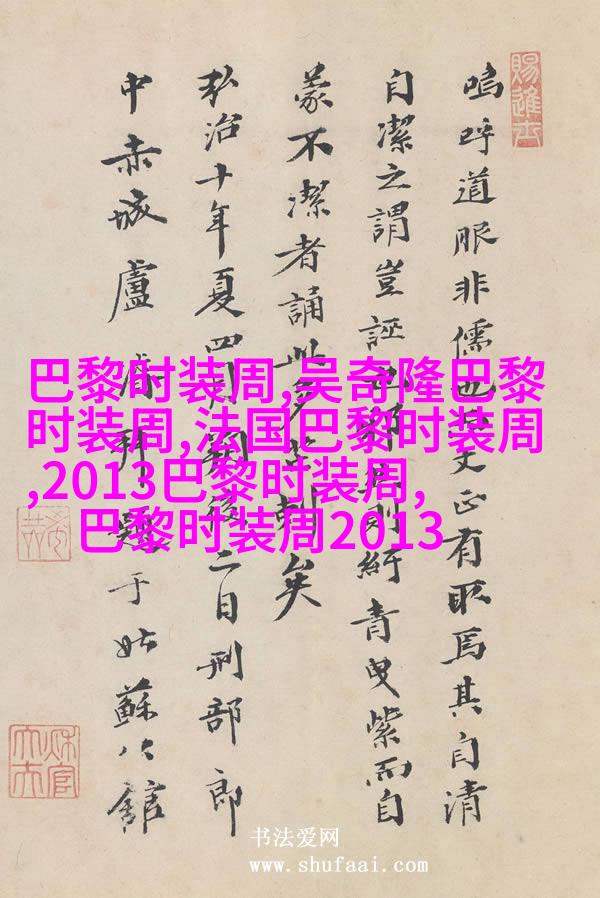 賜進士
嗚呼道服非儒也文正有取焉其自清
自潔之謂豈誣則紆青曳紫而自
蒙不潔者誦此多刺矣
弘治十年夏四月後二日刑部郎
中赤城盧題于姑蘇公館
巴黎时装周,吴奇隆巴黎
时装周,法国巴黎时装周
,2013巴黎时装周,
巴黎时装周2013
书法爱网
www.shufaai.com